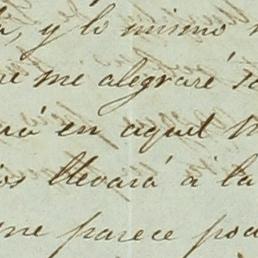 y lo mismo
me alegraré
en aquel
llevará a la
me parece